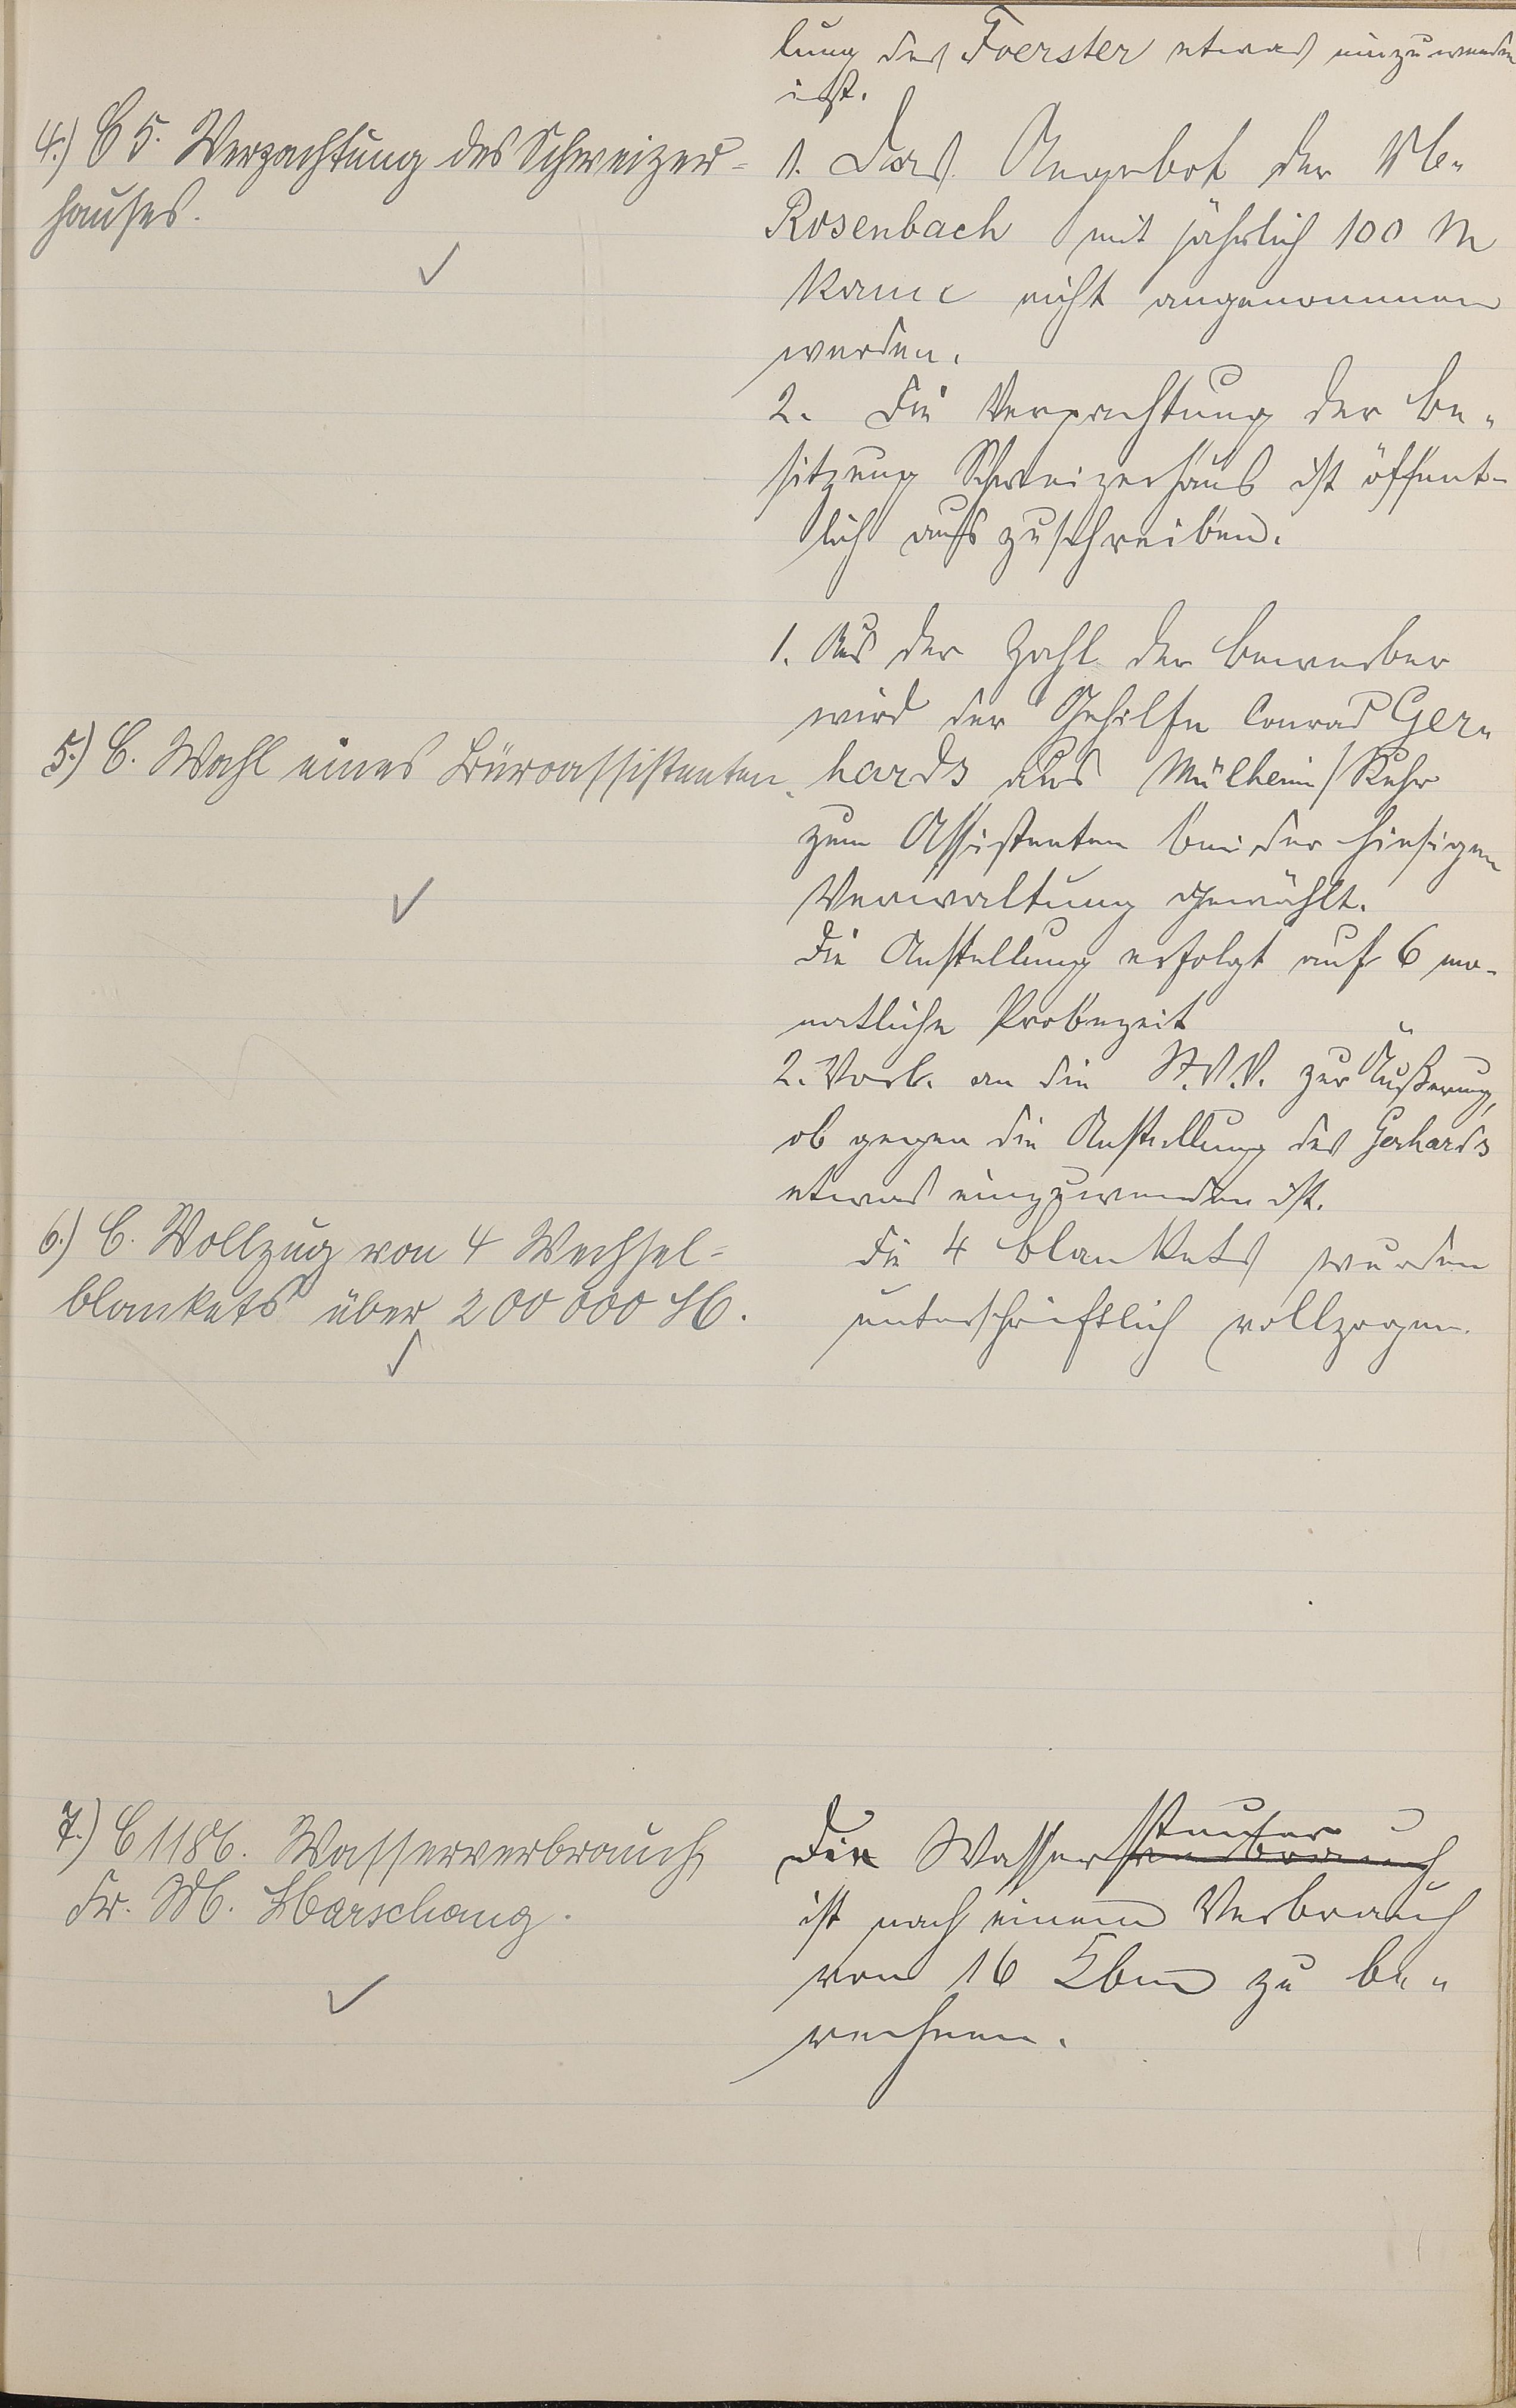 lung des Foerster etwas einzuwenden
ist.
4.) C 5. Verpachtung des Schweizer-
hauses.
1. Das Angebot der
Rosenbach mit jährlich 100 M
kann nicht angenommen
werden.
2. Die Verpachtung der Be-
sitzung Schweizerhaus ist öffent-
lich auszuschreiben.
5.) C. Wahl eines Büroassistenten.
1. Aus der Zahl der Bewerber
wird der Gehilfe Conrad Ger-
hards aus Mülheim/Ruhr
zum Assistenten bei der hiesigen
Verwaltung gewählt.
Die Anstellung erfolgt auf 6 mo-
natliche Probezeit
2. Vorl. an die St.V.V. zur Äußerung,
ob gegen die Anstellung des Gerhards
etwas einzuwenden ist.
6.) C. Vollzug von 4 Wechsel-
blankets über 200 000 M.
Die 4 Blankets wurden
unterschriftlich vollzogen.
7.) C 1186. Wasserverbrauch
Fr. W. Harschang.
Die Wassersteuer
ist nach einem Verbrauch
von 16 Cbm zu be-
rechnen.